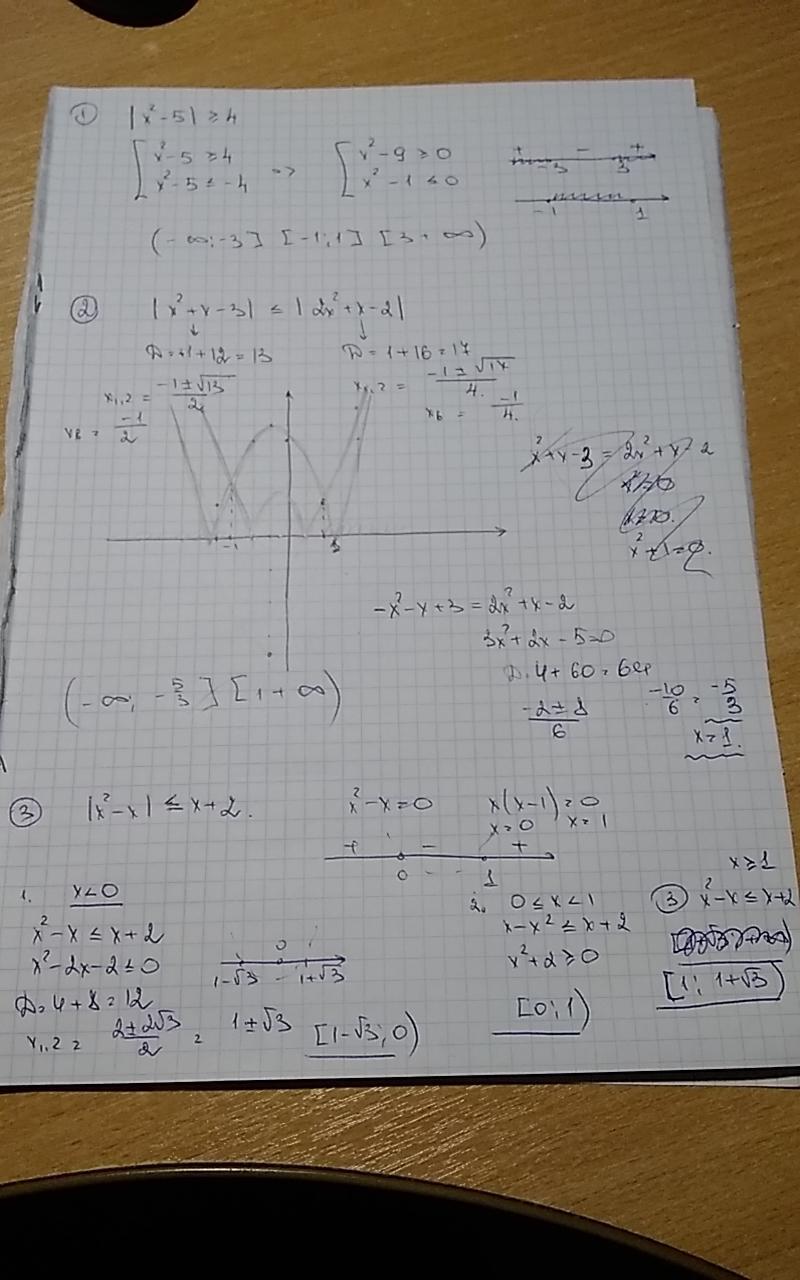 ① |x²-5| ≥ 4
[ x²-5 ≥ 4 => [ x²-9 ≥ 0
x²-5 ≤ -4 x²-1 ≤ 0
+ - +
-3 3
-1 1
(-∞; -3] [-1; 1] [3 + ∞)
② |x²+x-3| ≤ |2x²+x-2|
D = 1+12 = 13 D = 1+16 = 17
x₁,₂ = (-1±√13)/2 x₁,₂ = (-1±√17)/4.
xв = -1/2 xв = -1/4.
x²+x-3 = 2x²+x-2
x²+1=0.
-1
-x²-x+3 = 2x²+x-2
3x²+2x-5=0
D = 4+60 = 64
(-2±8)/6 -10/6 = -5/3
x=1.
(-∞; -5/3] [1 + ∞)
③ |x²-x| ≤ x+2. x²-x=0 x(x-1)=0
x=0 x=1
+ - +
0 1
1. x<0
x²-x ≤ x+2
x²-2x-2 ≤ 0
0
1-√3 - 1+√3
D = 4+8 = 12
x₁,₂ = (2±2√3)/2 = 1±√3 [1-√3; 0)
2. 0 ≤ x < 1
x-x² ≤ x+2
x²+2 ≥ 0
[0; 1)
x ≥ 1
③ x²-x ≤ x+2
[1; 1+√3)